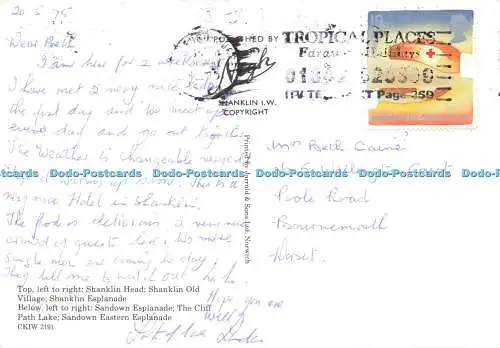 20.5.95
Dear Beth
I am here for 2 weeks
I have met 2 very nice
the first day and we meet up
every day and go out together
The Weather is changeable very
warming up now. This is a
very nice Hotel in Shanklin.
The food is delicious a very nice
crowd of guests here, two more
single men are coming to day,
They tell me to watch out ha ha.
Hope you are
Well
Lots of love
Top, left to right: Shanklin Head; Shanklin Old
Village; Shanklin Esplanade
Below, left to right: Sandown Esplanade; The Cliff
Path Lake; Sandown Eastern Esplanade
(CKIW 219)
PUBLISHED BY
Nigh
SHANKLIN I.W.
COPYRIGHT
Printed by Jarrold & Sons Ltd, Norwich
TROPICAL PLACES
Faraway Holidays
ITV TELETEXT Page 259
19
Mrs Beth Caine
Court
Poole Road
Bournemouth
Dorset.
Dodo-Postcards Dodo-Postcards Dodo-Postcards Dodo-Postcards